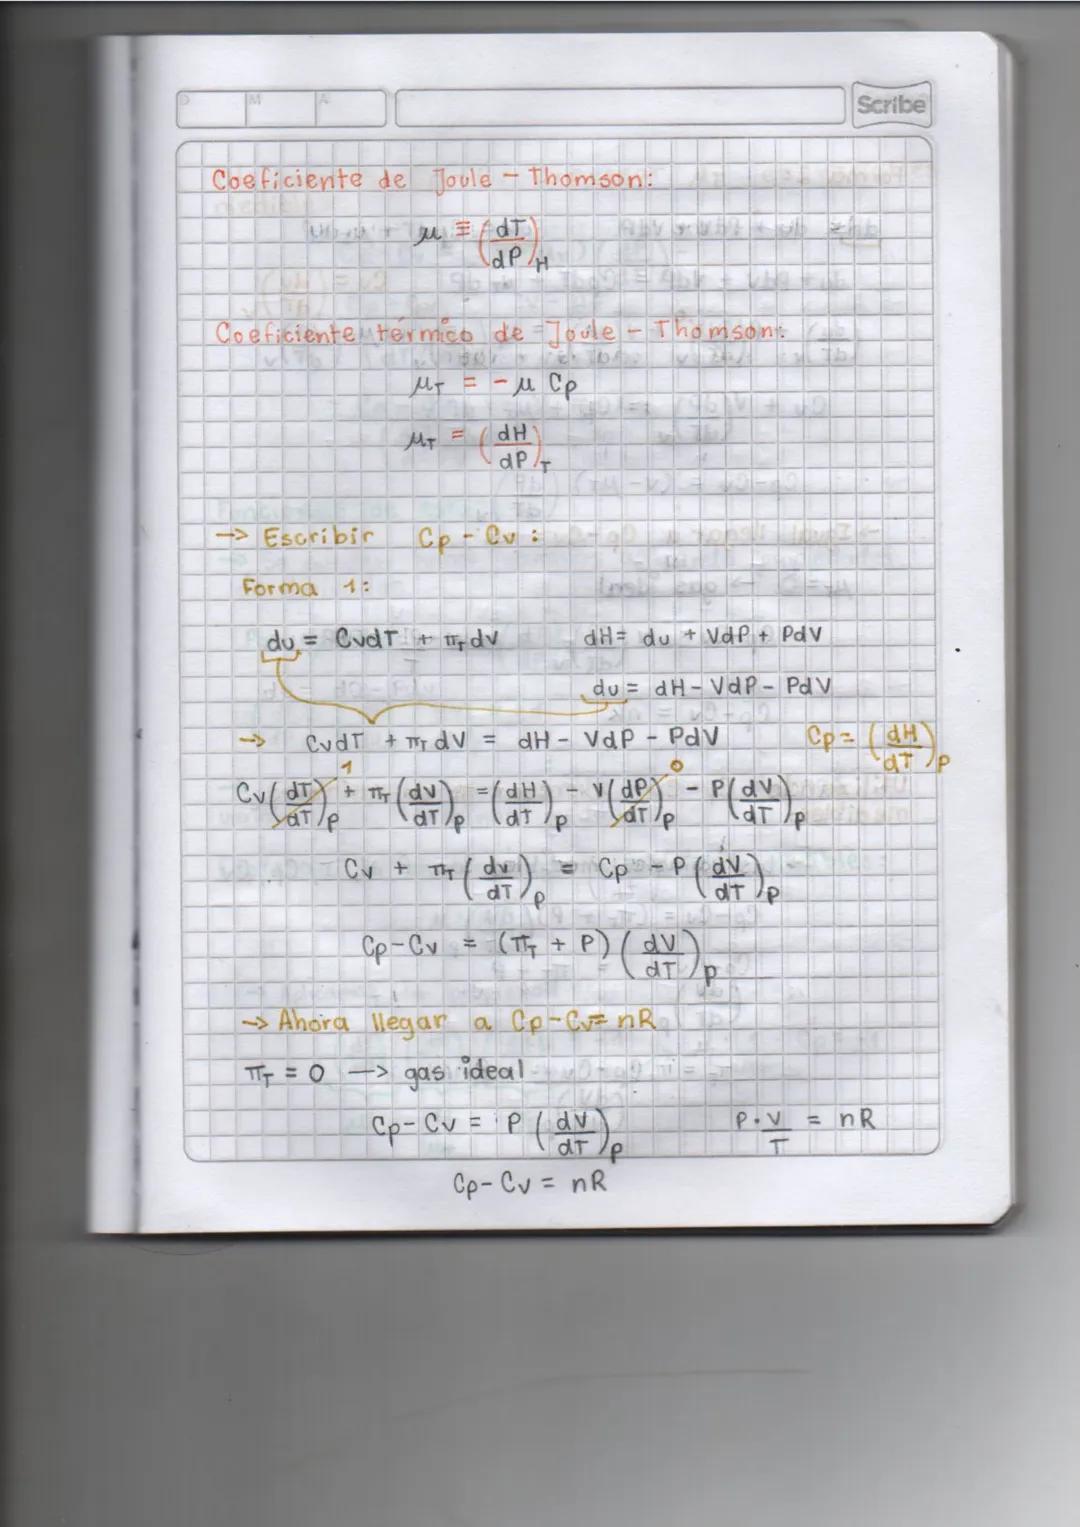 D M A Scribe
Coeficiente de Joule - Thomson:
μ ≡ (dT/dP)H
Coeficiente térmico de Joule - Thomson:
μT = -μ Cp
μT = (dH/dP)T
→ Escribir Cp - Cv :
Forma 1:
du = CvdT + πT dv dH= du + VdP + PdV
du = dH - VdP - PdV
→ CvdT + πT dV = dH - VdP - PdV Cp = (dH/dT)P
1 0
Cv(dT/dT)p + πT (dv/dT)p = (dH/dT)p - V(dP/dT)p - P(dV/dT)p
Cv + πT (dv/dT)p = Cp - P(dV/dT)p
Cp-Cv = (πT + P) (dV/dT)p
→ Ahora llegar a Cp-Cv= nR
πT = 0 → gas ideal
Cp- Cv = P (dV/dT)p P·V/T = nR
Cp- Cv = nR